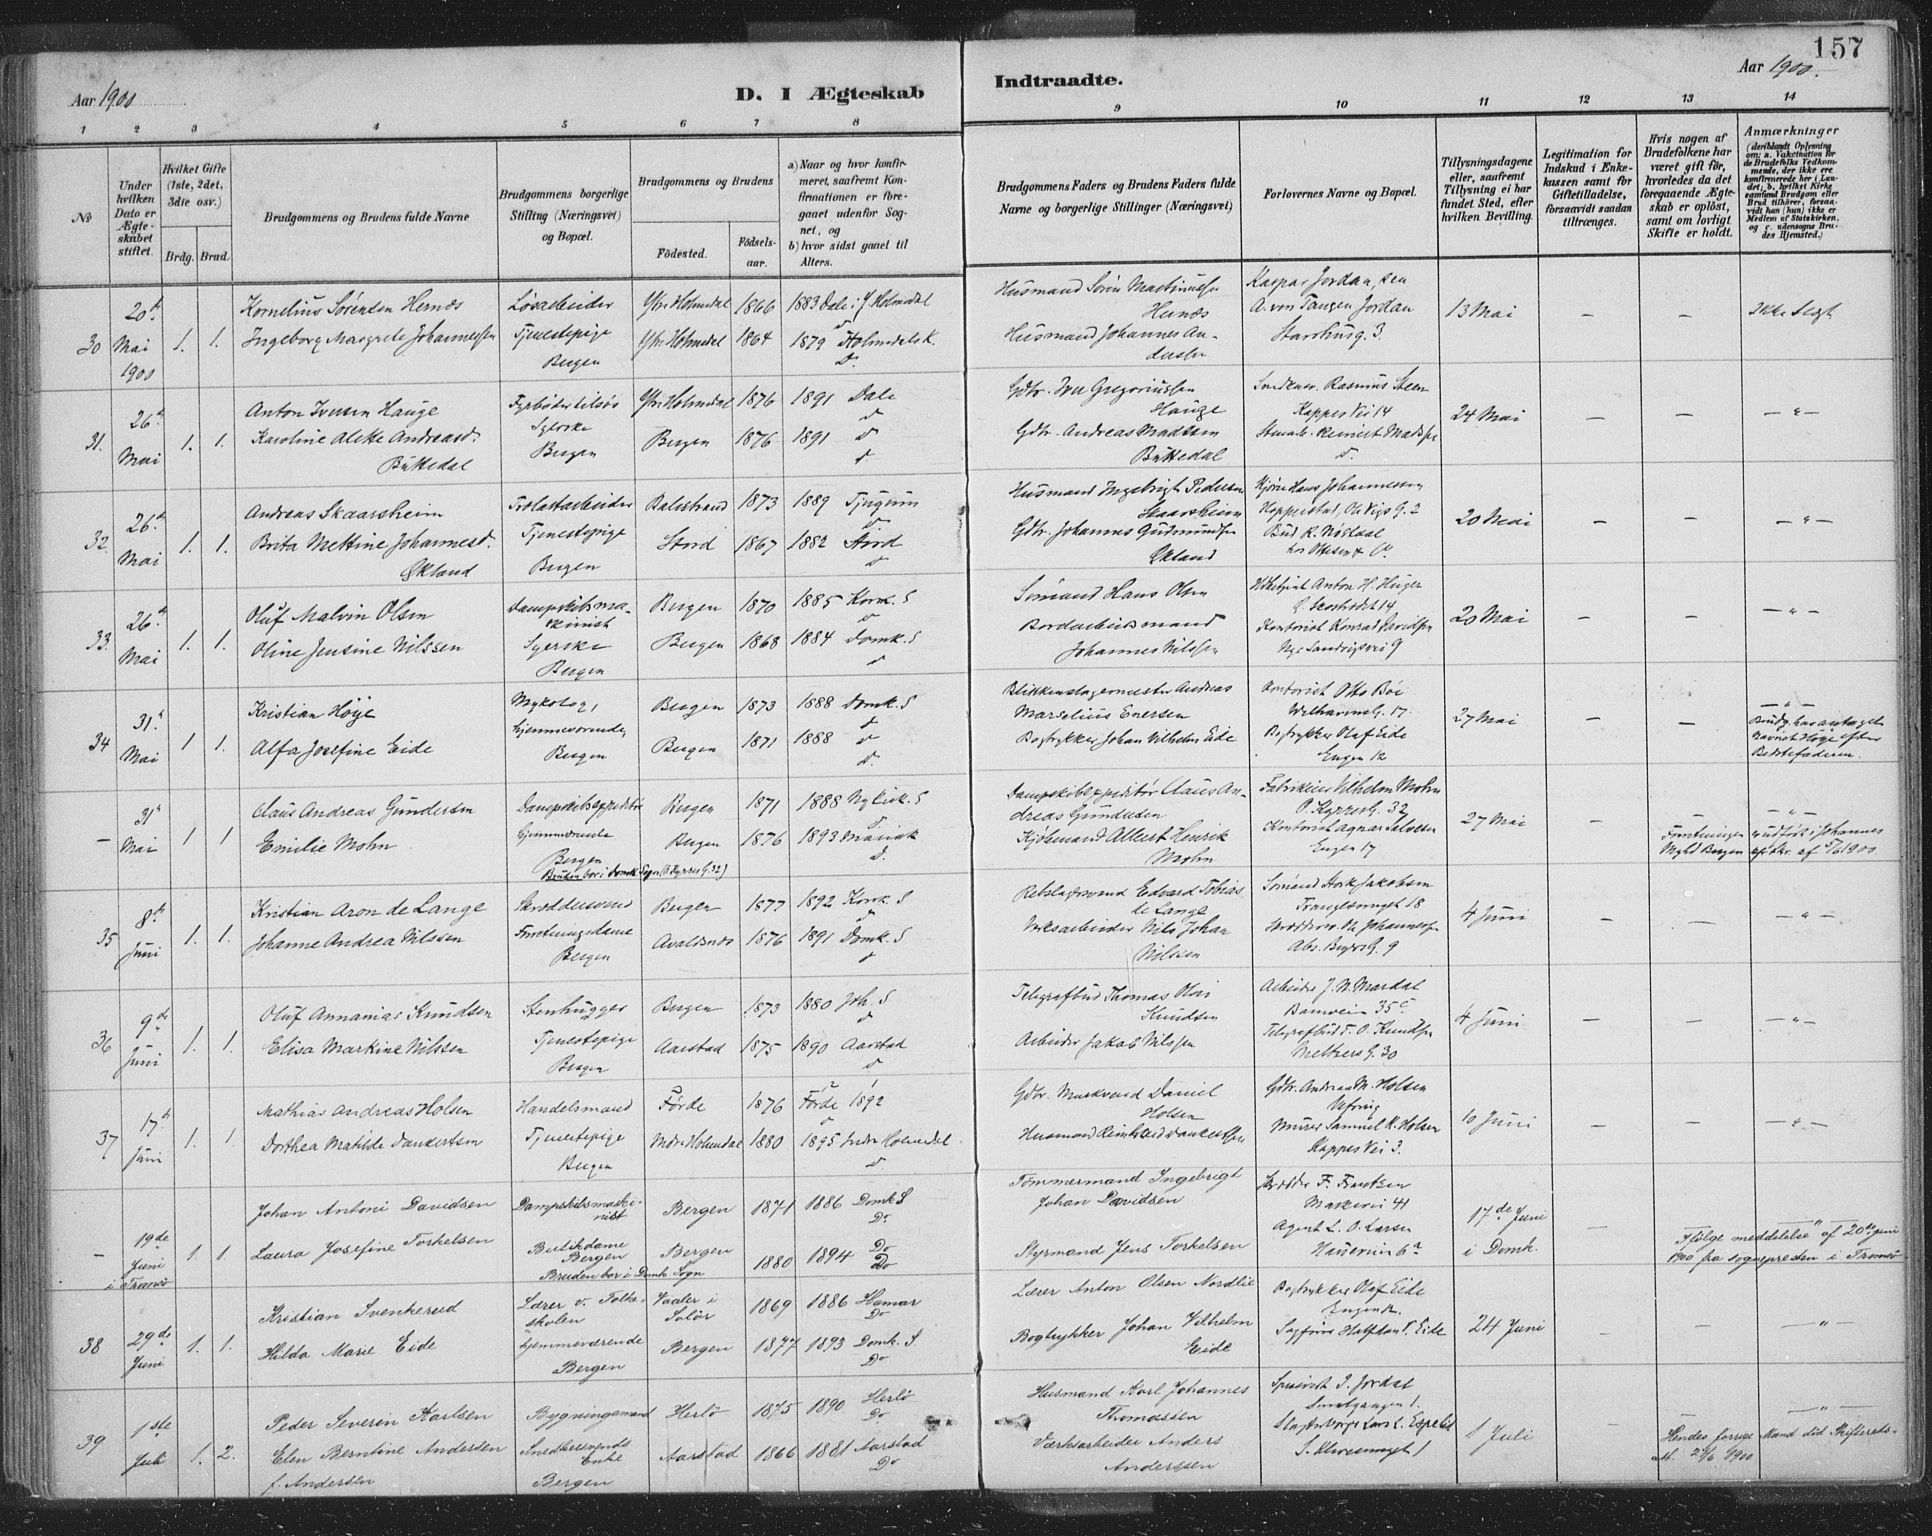 157
Aar 1900
D. I Ægteskab
Indtraadte.
Aar 1900.
1 2 3 4 5 6 7 8 9 10 11 12 13 14
No
Under hvilken Dato er Ægteskabet stiftet.
Hvilket Gifte (1ste, 2det, 3die osv.)
Brdg. Brud.
Brudgommens og Brudens fulde Navne
Brudgommens borgerlige Stilling (Næringsvei) og Bopæl.
Brudgommens og Brudens
Födested.
Födselsaar.
a) Naar og hvor konfirmeret, saafremt Konfirmationen er foregaaet udenfor Sognet, og
b) hvor sidst gaaet til Alters.
Brudgommens Faders og Brudens Faders fulde Navne og borgerlige Stillinger (Næringsvei)
Forlovernes Navne og Bopæl.
Tillysningsdagene eller, saafremt Tillysning ei har fundet Sted, efter hvilken Bevilling.
Legitimation for Indskud i Enkekassen samt for Giftetilladelse, forsaavidt saadan tiltrænges.
Hvis nogen af Brudefolkene har været gift för, hvorledes da det foregaaende Ægteskab er oplöst, samt om lovligt Skifte er holdt.
Anmærkninger
(deriblandt Oplysning om: a. Vakcination for de Brudefolks Vedkommende, der ikke ere konfirmerede her i Landet; b. hvilket Kirkesamfund Brudgom eller Brud tilhörer, forsaavidt han (hun) ikke er Medlem af Statskirken, og c. udensogns Brudes Hjemsted.)
30 20de Mai 1900 1. 1.
Kornelius Sørensen Hernæs Løsarbeider Ytre Holmedal 1866 1883 Dale i Y. Holmedal
Husmand Søren Martinussen Hernæs
Kaspar Jordan, sen
A. von Tangen Jordan
13 Mai — — Ikke Slegt
Ingeborg Margrete Johannessen Tjenestepige Ytre Holmedal 1864 1879 Holmedals K.
Bergen
Husmand Johannes Andersen
31. 26de Mai 1. 1.
Anton Iversen Hauge Fyrbøder tilsøs Ytre Holmedal 1876 1891 Dale
Gdbr. Iver Gregoriussen Hauge
Snedkersv. Rasmus Steen
Kappes Vei 14
24 Mai — — — " —
Karoline Alette Andreasd. Syerske Bergen 1876 1891 d
Büttedal Bergen
Gdbr. Andreas Madssen Büttedal
32. 26de Mai 1. 1.
Andreas Skaarsheim Balestrand 1873 1889 Tjugum
Husmand Ingebrigt Pedersen Skaarsheim
20 Mai — — — " —
Brita Mettine Johannesd. Tjenestepige Stord 1867 1882 Stord
Økland Bergen
Gdbr. Johannes Gutmundsen Økland
33. 26de Mai 1. 1.
Oluf Malvin Olsen Dampskibsmaskinist Bergen 1870 1885 Korsk. S
Sömand Hans Olsen
20 Mai — — — " —
Oline Jensine Nilssen Syerske Bergen 1868 1884 Domk. S
Bergen
Johannes Nilssen
Kontorist Konrad Davidsen
Nye Sandvigsvei 9
34 31te Mai 1 1.
Kristian Høye Mykolog, Bergen 1873 1888 Domk. S
Blikkenslagermester Andreas Marselius Enersen
Kontorist Otto Böe
Welhavensg. 17.
27 Mai — — — " —
Alfa Josefine Eide hjemmeværende, Bergen 1871 1888 d
Bergen
Bogtrykker Johan Vilhelm Eide
Bogtrykker Olaf Eide
Engen 12
Brudg. har antaget Navnet Høye efter Bedstefaderen.
— 31te Mai 1 1
Claus Andreas Gundersen Dampskibsexpeditør Bergen 1871 1888 Nykirk. S
Dampskibsexpeditør Claus Andreas Gundersen
Fabrikeier Vilhelm Mohn
O. Kyrres G. 32
27 Mai — — — " —
Emilie Mohn hjemmeværende Bergen 1876 1893 Mariak
Bergen
Bruden bor i Domk. Sogn (O. Kyrres G. 32)
Kjøbmand Albert Henrik Mohn
Engen 17
Forretningen udført i Johannes
35 8de Juni 1. 1.
Kristian Aron de Lange Skræddersvend Bergen 1877 1892 Korsk. S
Rebslagersvend Edvard Tobias de Lange
Sömand Stork Jakobsen
18
4 Juni — — — " —
Johanne Andrea Nilssen Forretningsdame Avaldsnæs 1876 1891 Domk. S
Bergen
Verksarbeider Nils Johan Nilssen
36 9de Juni 1. 1.
Oluf Annanias Knudsen Stenhugger Bergen 1873 1880 Joh. S
Telegrafbud Thomas Olai Knudsen
Arbeider J. N. Mardal
Damsveien 35c
4 Juni — — — " —
Elisa Markine Nilssen Tjenestepige Aarstad 1875 1890 Aarstad
Bergen
Arbeider Jakob Nilssen
Telegrafbud T. O. Knudsen
Meltzers G. 30
37 17de Juni 1. 1.
Mathias Andreas Holsen Handelsmand Førde 1876 Førde 1892
Gdbr. Markvard Daniel Holsen
Gdbr. Andreas M. Holsen
10 Juni — — — " —
Dorthea Matilde Dankertsen Tjenestepige Indre Holmedal 1880 1895 Indre Holmedal
Bergen
Husmand Reinhard Dankertsen
Murer Samuel K. Holsen
Kappes Vei 3.
— 19de Juni i Tromsø 1. 1.
Johan Antoni Davidsen Dampskibsmaskinist Bergen 1871 1886 Domk S
Do.
Tömmermand Ingebrigt Johan Davidsen
Markevei 41
17de Juni i Domk.
Laura Josefine Torkelsen Butikdame Bergen 1880 1894 Do
Bergen Do
Bruden bor i Domk Sogn
Styrmand Jens Torkelsen
Agent L. O. Larsen
Ifølge meddelelse af 20de juni 1900 fra sognepresten i Tromsø
38 29de Juni 1. 1.
Kristian Svenkerud Lærer v. Folkeskolen Vaaler i Solör 1869 1886 Hamar
Do
Lærer Anton Olsen Nordlie
Bogtrykker Olaf Eide
Engen 12.
24 Juni — — — " —
Hilda Marie Eide hjemmeværende Bergen 1877 1893 Domk. S.
Bergen Do
Bogtrykker Johan Vilhelm Eide
Sagförer Halfdan V. Eide
39 1ste Juli 1. 2.
Peder Severin Karlsen Bygningsmand Herlø 1875 1890 Herlø
Do.
Husmand Karl Johannes Thomassen
1 Juli — — " —
Elen Berntine Andersen Snedkersvends Enke Aarstad 1866 1881 Aarstad
f. Anderssen Bergen Do
Værksarbeider Anders Anderssen
Hendes forrige Mand död Skifteretsat. 29/6 1900